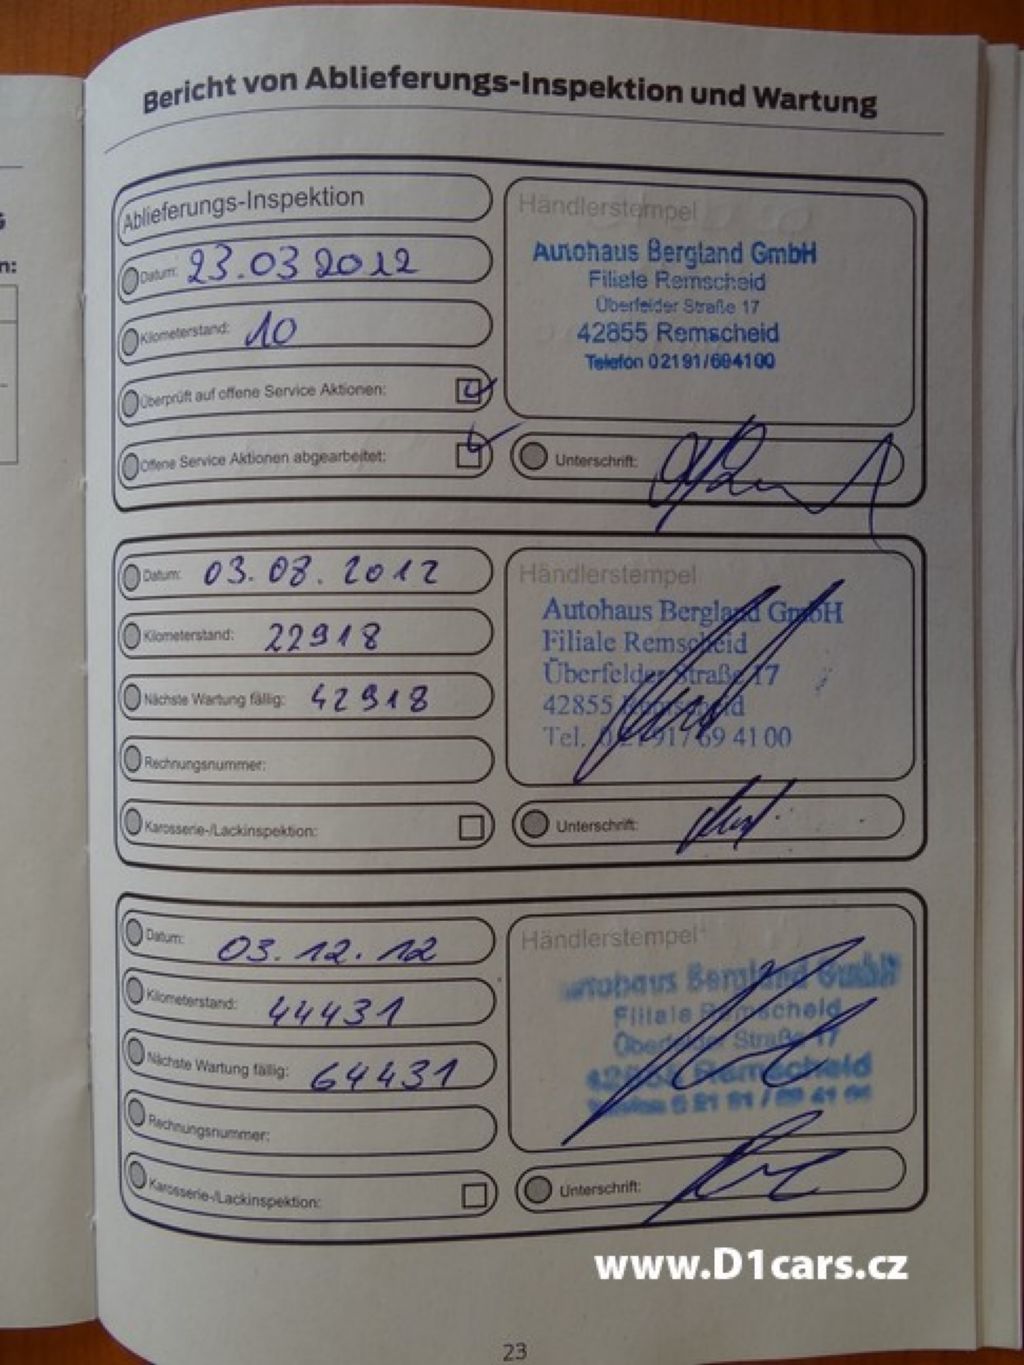 Bericht von Ablieferungs-Inspektion und Wartung
Ablieferungs-Inspektion
Datum: 23.03 2012
Kilometerstand: 10
Überprüft auf offene Service Aktionen:
Offene Service Aktionen abgearbeitet:
Händlerstempel
Autohaus Bergland GmbH
Filiale Remscheid
Überfelder Straße 17
42855 Remscheid
Telefon 02191/694100
Unterschrift:
Datum: 03.08.2012
Kilometerstand: 22918
Nächste Wartung fällig: 42918
Rechnungsnummer:
Karosserie-/Lackinspektion:
Händlerstempel
Autohaus Bergland GmbH
Filiale Remscheid
Überfelder Straße 17
42855 Remscheid
Tel. 02191/69 41 00
Unterschrift:
Datum: 03.12.12
Kilometerstand: 44431
Nächste Wartung fällig: 64431
Rechnungsnummer:
Karosserie-/Lackinspektion:
Händlerstempel
Autohaus Bergland GmbH
Filiale Remscheid
Überfelder Straße 17
42855 Remscheid
Telefon 0 21 91 / 69 41 00
Unterschrift:
www.D1cars.cz
23
n: